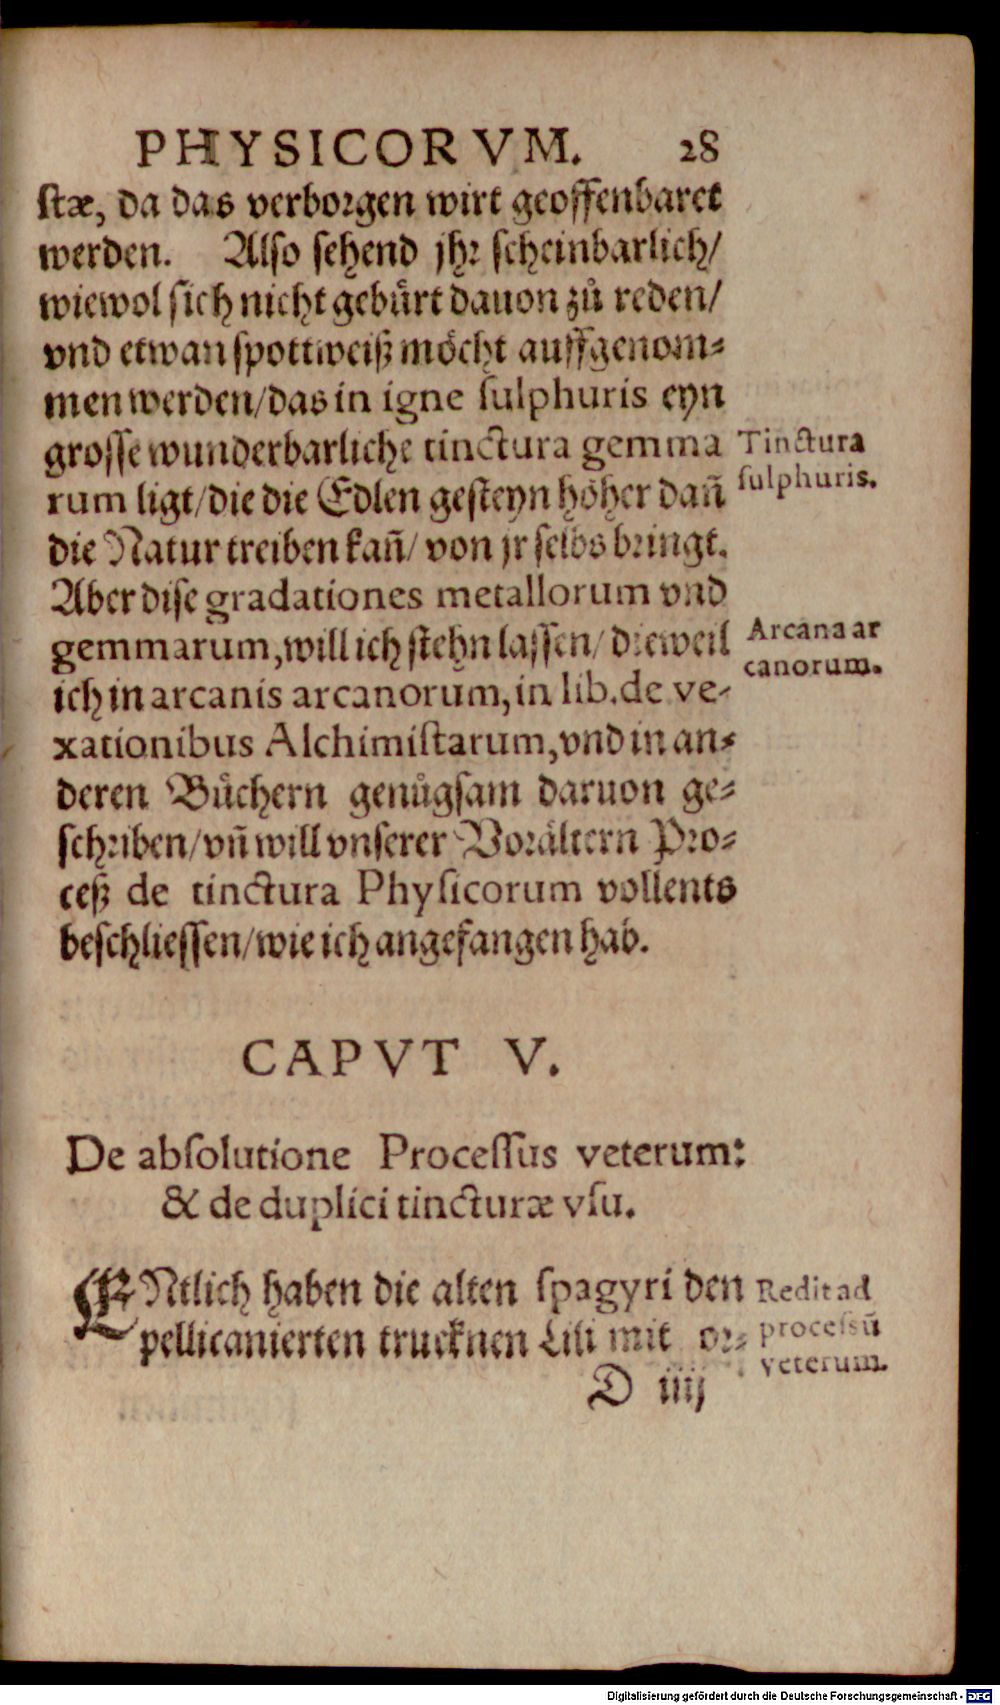 PHYSICORVM. 28
stæ, da das verborgen wirt geoffenbaret
werden. Also sehend jhr scheinbarlich/
wiewol sich nicht gebuͤrt dauon zuͦ reden/
vnd etwan spottweiß moͤcht auffgenom⸗
men werden/das in igne sulphuris eyn
grosse wunderbarliche tinctura gemma
Tinctura
sulphuris.
rum ligt/die die Edlen gesteyn hoͤher dañ
die Natur treiben kañ/ von jr selbs bringt.
Aber dise gradationes metallorum vnd
gemmarum,will ich stehn lassen/ dieweil
Arcana ar
canorum.
ich in arcanis arcanorum,in lib.de ve-
xationibus Alchimistarum,vnd in an⸗
deren Buͤchern genuͦgsam daruon ge⸗
schriben/vñ will vnserer Voraͤltern Pro⸗
ceß de tinctura Physicorum vollents
beschliessen/wie ich angefangen hab.
CAPVT V.
De absolutione Processus veterum:
& de duplici tincturæ vsu.
ENtlich haben die alten spagyri den
Redit ad
processũ
veterum.
pellicanierten trucknen Lili mit or⸗
D iiij
Digitalisierung gefördert durch die Deutsche Forschungsgemeinschaft - DFG